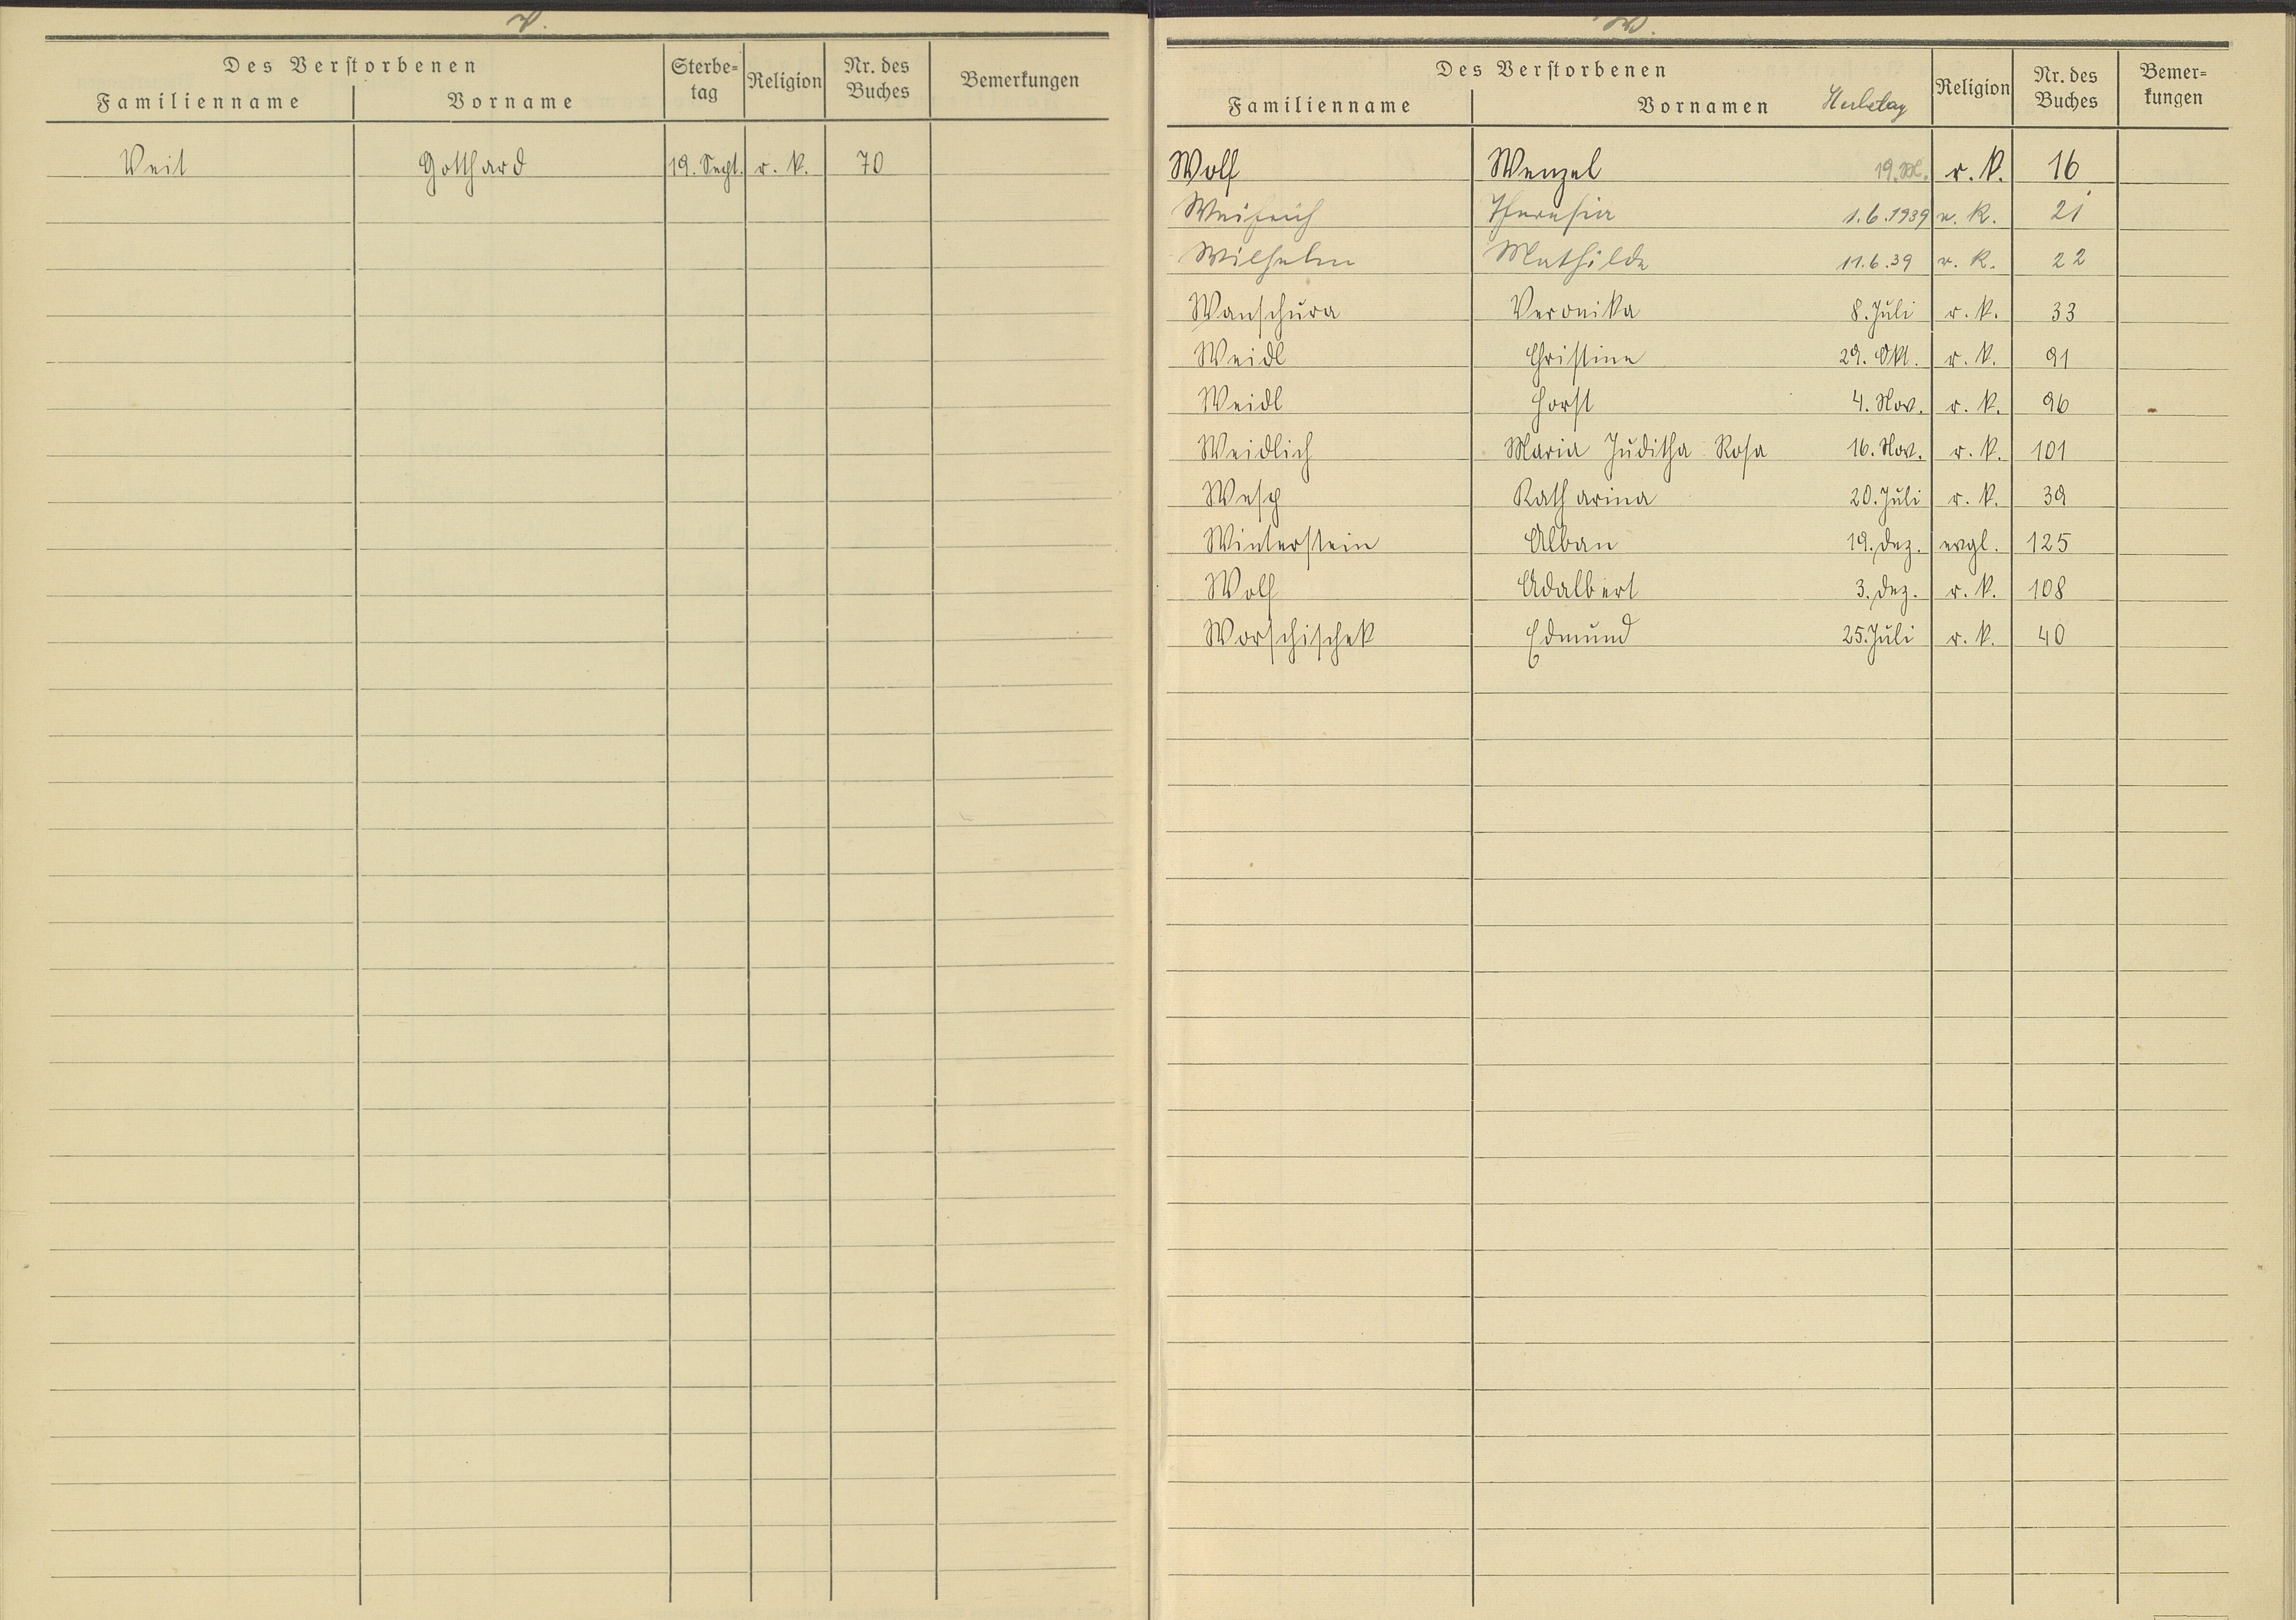 V.
Des Verstorbenen Sterbe= Religion Nr. des Bemerkungen
Familienname Vorname tag Buches
Veit Gotthard 19. Sept. r. k. 70
W.
Des Verstorbenen Religion Nr. des Bemer=
Familienname Vornamen Sterbetag Buches kungen
Wolf Wenzel 19. r. k. 16
Theresia 1.6.1939 r. k. 21
Wilhelm Mathilde 11.6.39 r. k. 22
Wanschura Veronika 8. Juli r. k. 33
Weidl Christine 29. Okt. r. k. 91
Weidl Horst 4. Nov. r. k. 96
Weidlich Maria Juditha Rosa 16. Nov. r. k. 101
Wesp Katharina 20. Juli r. k. 39
Winterstein Alban 19. Dez. evgl. 125
Wolf Adalbert 3. Dez. r. k. 108
Worschischek Edmund 25. Juli r. k. 40